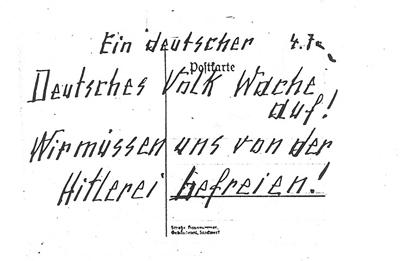 Ein deutscher 4.7.
Postkarte
Deutsches Volk Wache
auf!
Wir müssen uns von der
Hitlerei befreien!
Straße, Hausnummer,